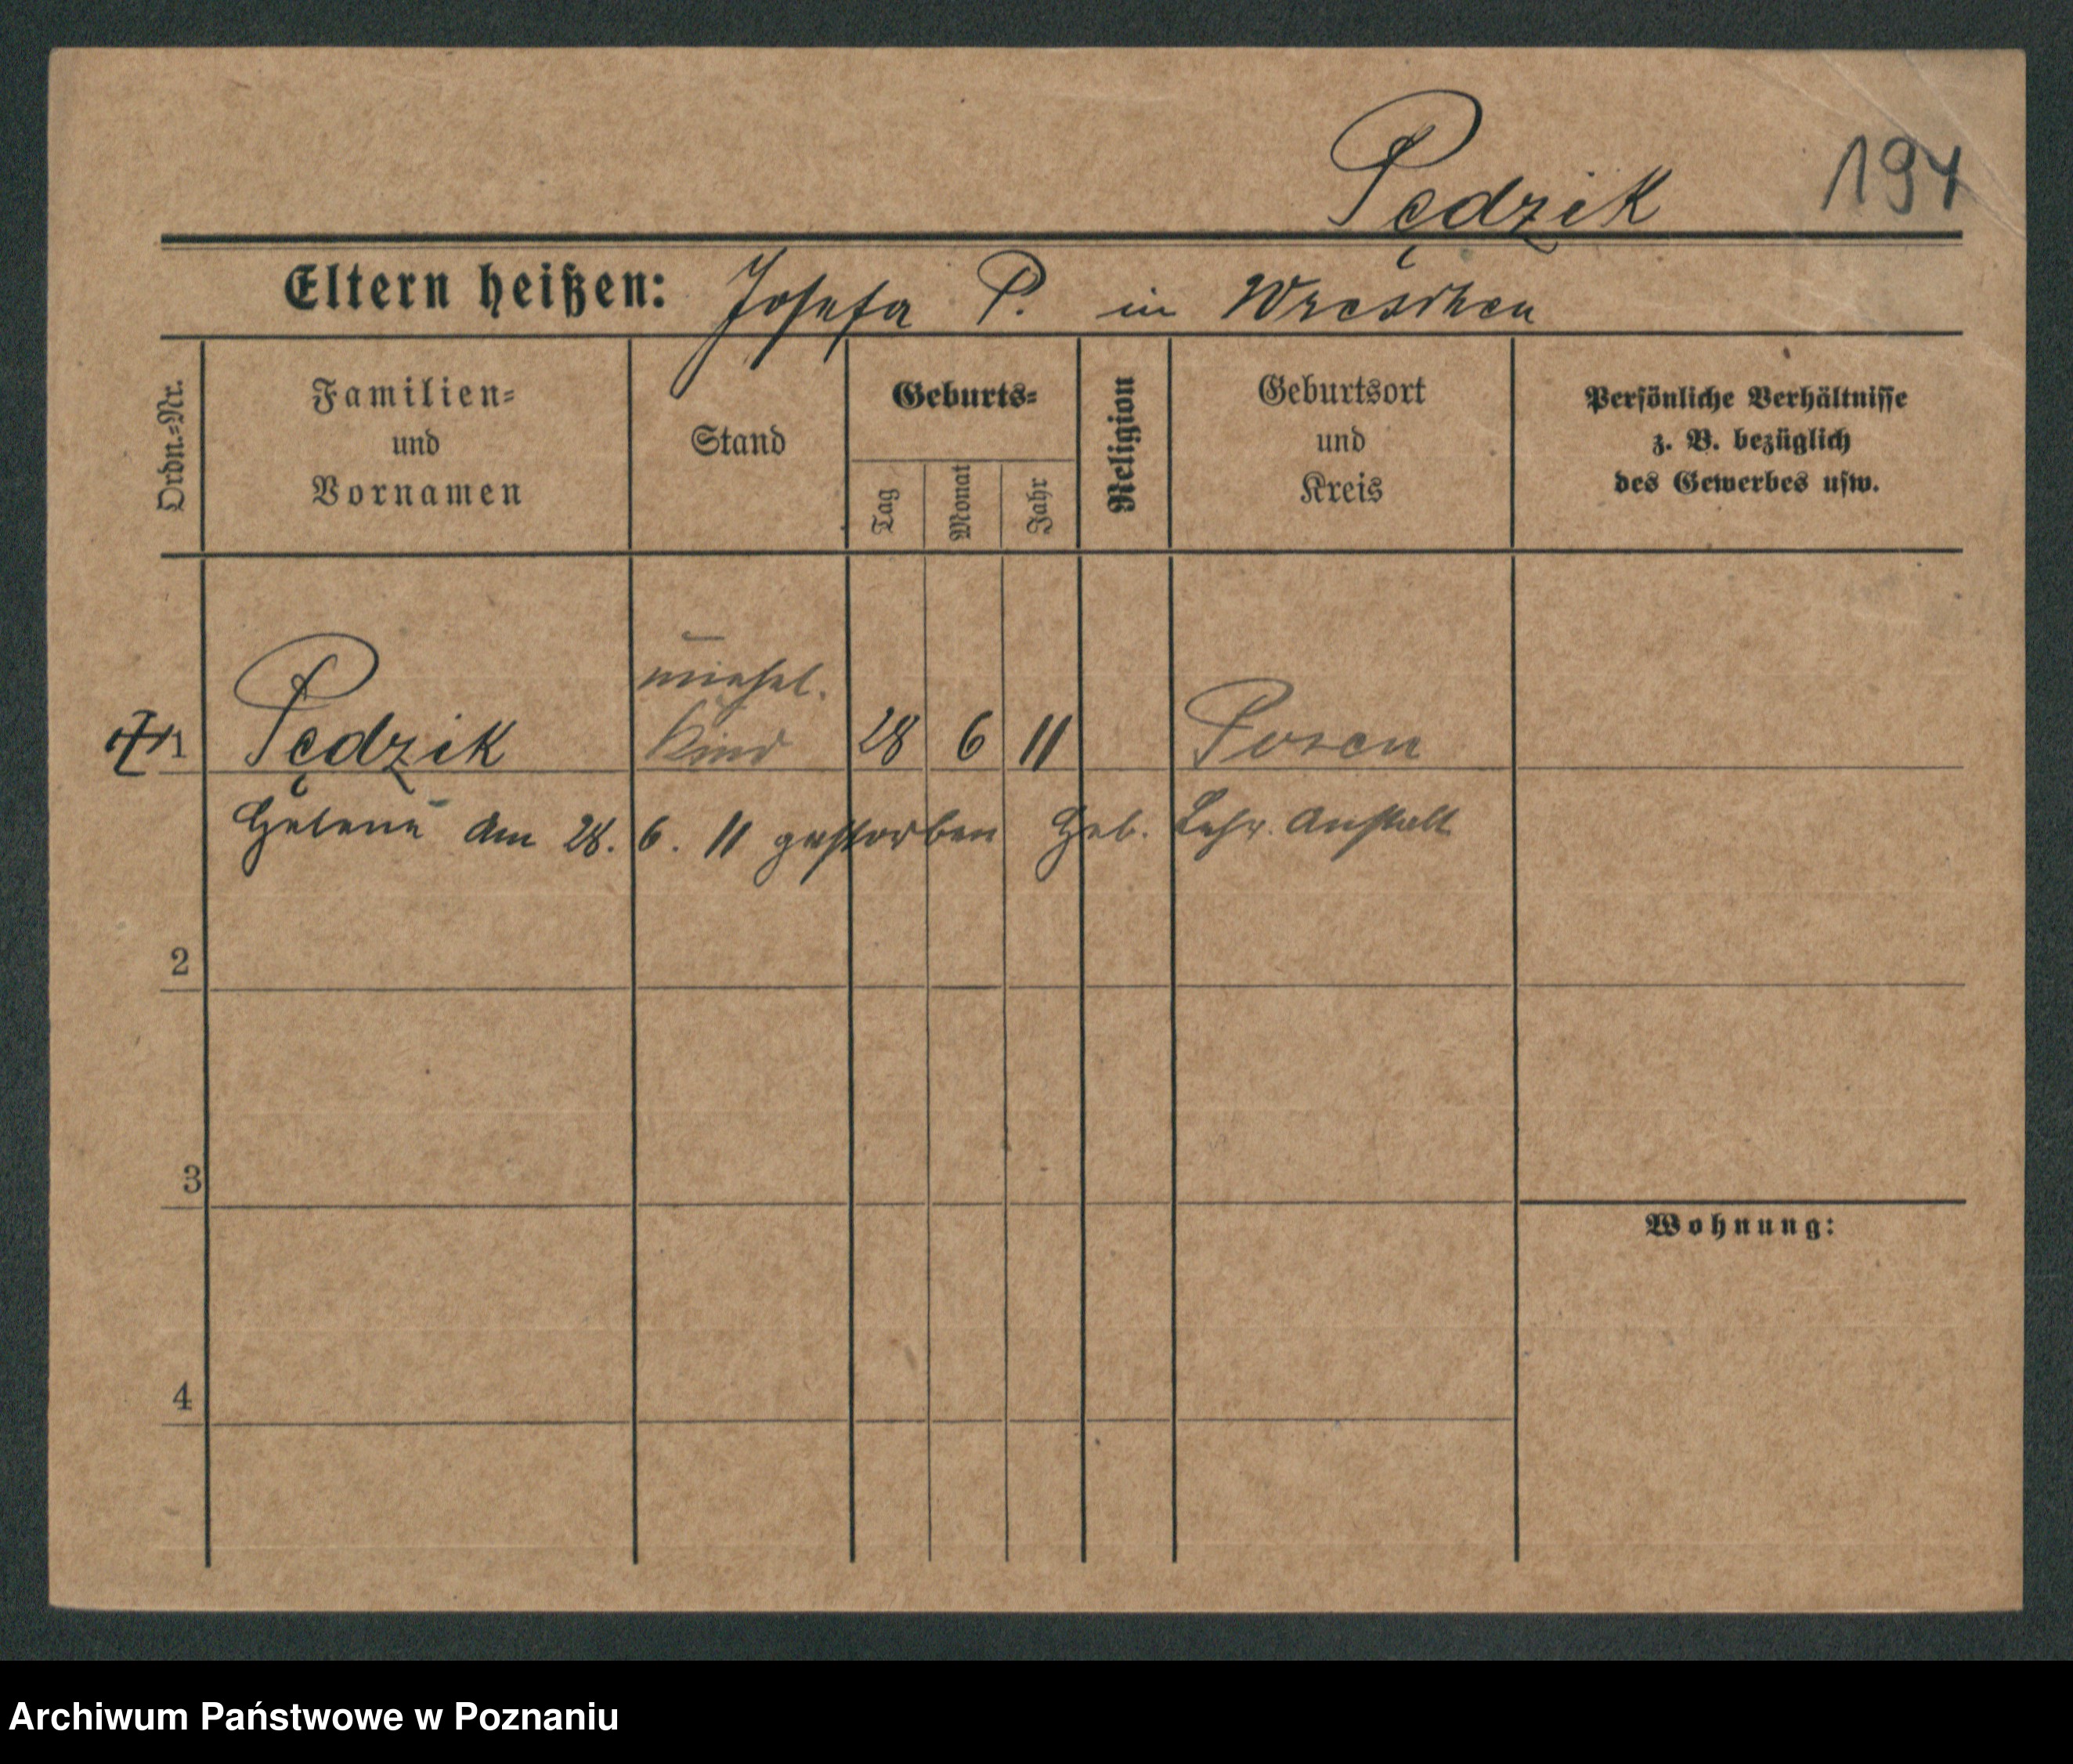 Pędzik 194
Eltern heißen: Josefa P. in Wreschen
Ordn.-Nr.
Familien-
und
Vornamen
Stand
Geburts-
Tag
Monat
Jahr
Religion
Geburtsort
und
Kreis
Persönliche Verhältnisse
z. B. bezüglich
des Gewerbes usw.
unehel.
1 Pędzik Kind 28 6 11 Posen
Helene am 28. 6. 11 gestorben Heb. Lehr. Anstalt
2
3
Wohnung:
4
Archiwum Państwowe w Poznaniu